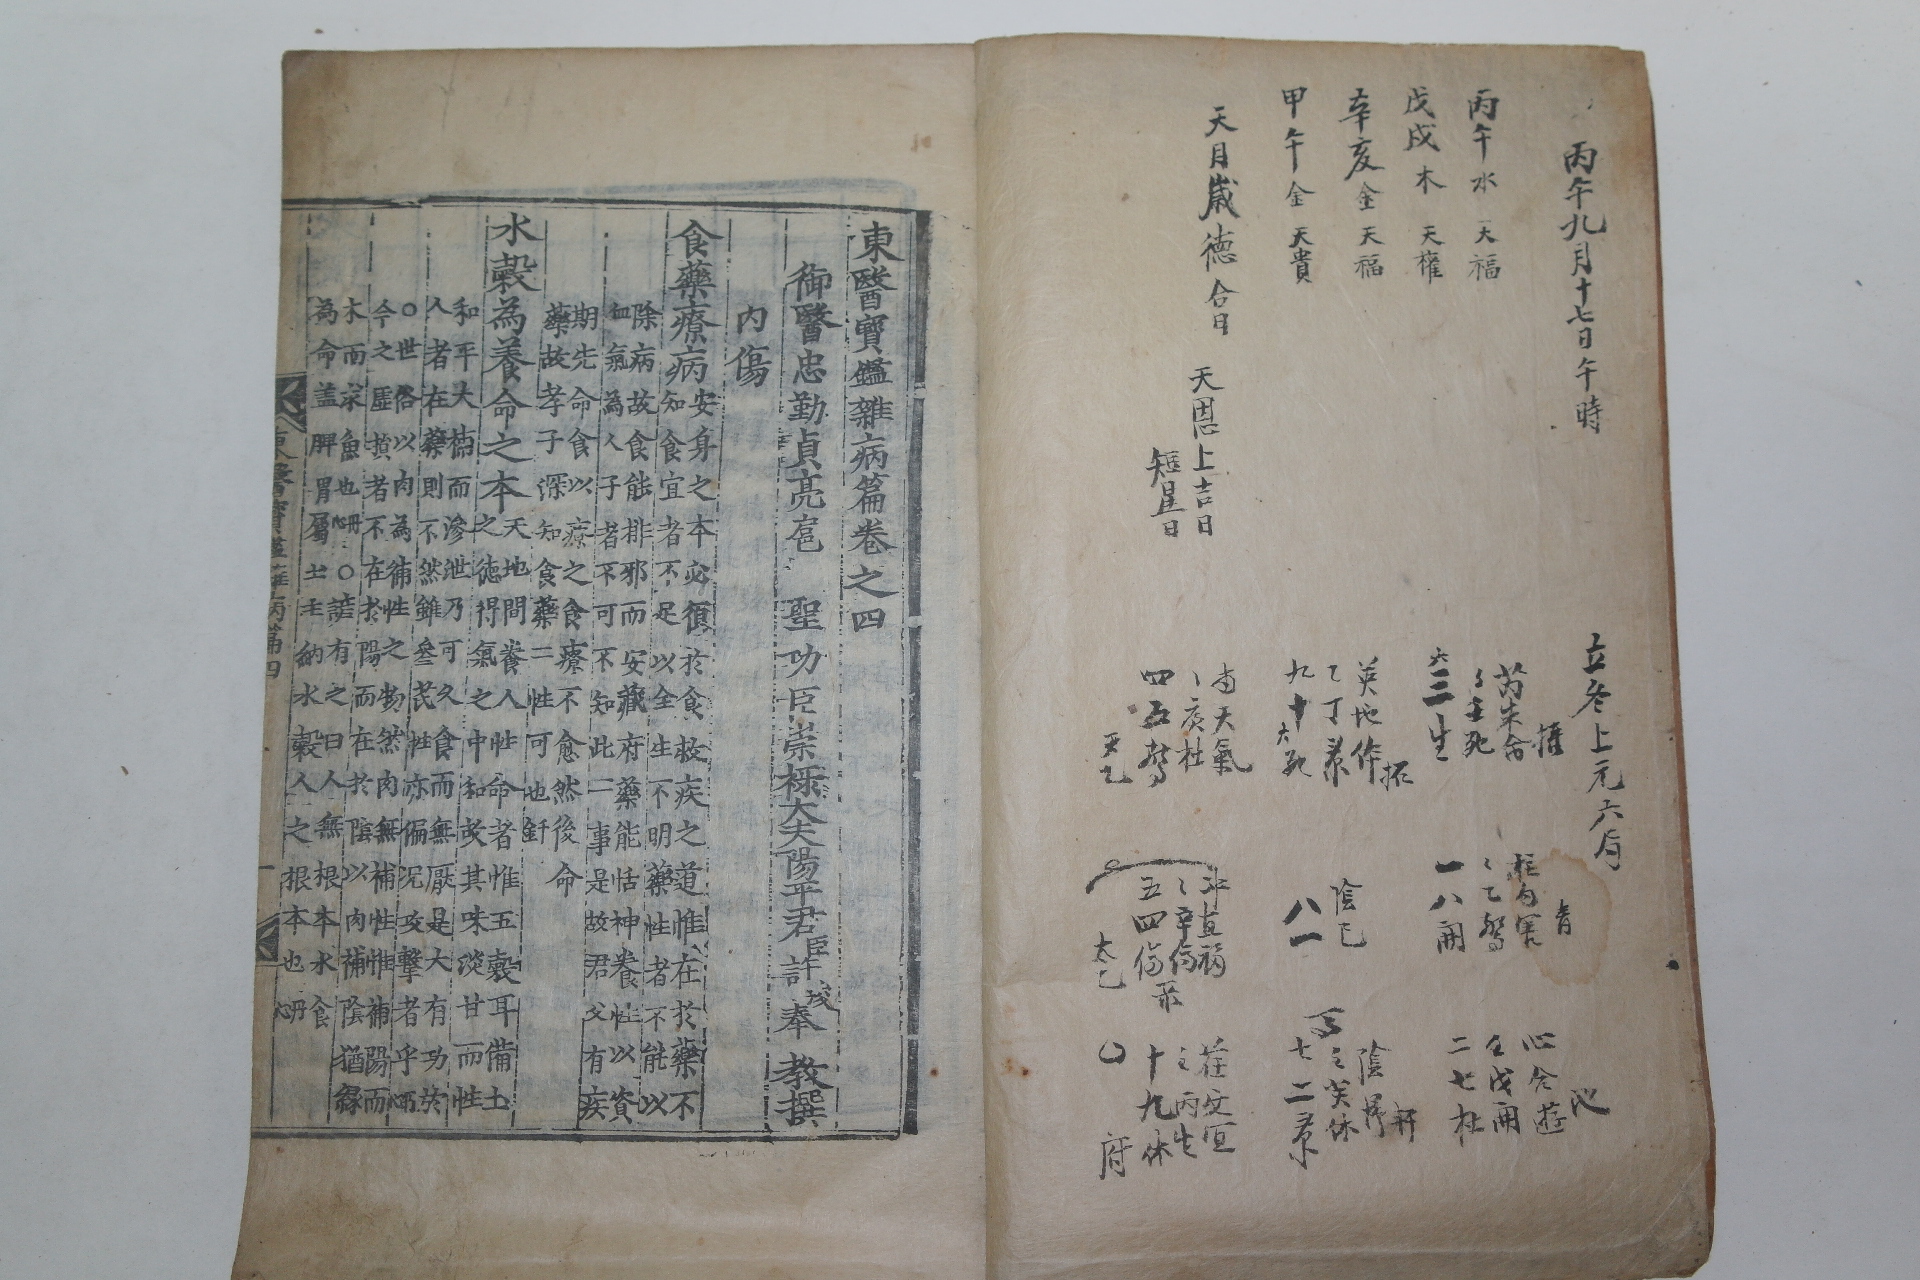 丙午九月十七日午時
立冬上元六局
丙午水天福
戊戌木天權
辛亥金天福
甲午金天貴
天月歲德合日
天恩上吉日
短星日
六三生
一八開
二七杜
陰
八一
七二景
四五驚
五四傷
十九休
天乙
太乙
府
東醫寶鑑雜病篇卷之四
御醫忠勤貞亮扈聖功臣崇祿大夫陽平君臣許浚奉教撰
內傷
食藥療病安身之本必須於食救疾之道惟在於藥不
知食宜者不足以全生不明藥性者不能以
除病故食能排邪而安藏府藥能恬神養性以資
血氣為人子者不可不知此二事是故君父有疾
期先命食以療之食療不愈然後命
藥故孝子深知食藥二性可也鈃
水穀為養命之本天地間養人性命者惟五穀耳備土
之德得氣之中和故其味淡甘而性
和平大補而滲泄乃可久食而無厭是大有功於
人者在藥則不然雖參芪性亦偏況攻擊者乎丹心
○世俗以肉為補性之物然肉無補性惟補陽而
今之虛損者不在於陽而在於陰以肉補陰猶緣
木而求魚也丹心○諺有之曰人無根本水食
為命盖脾胃屬土主納水穀人之根本也丹心
東醫寶鑑雜病篇四